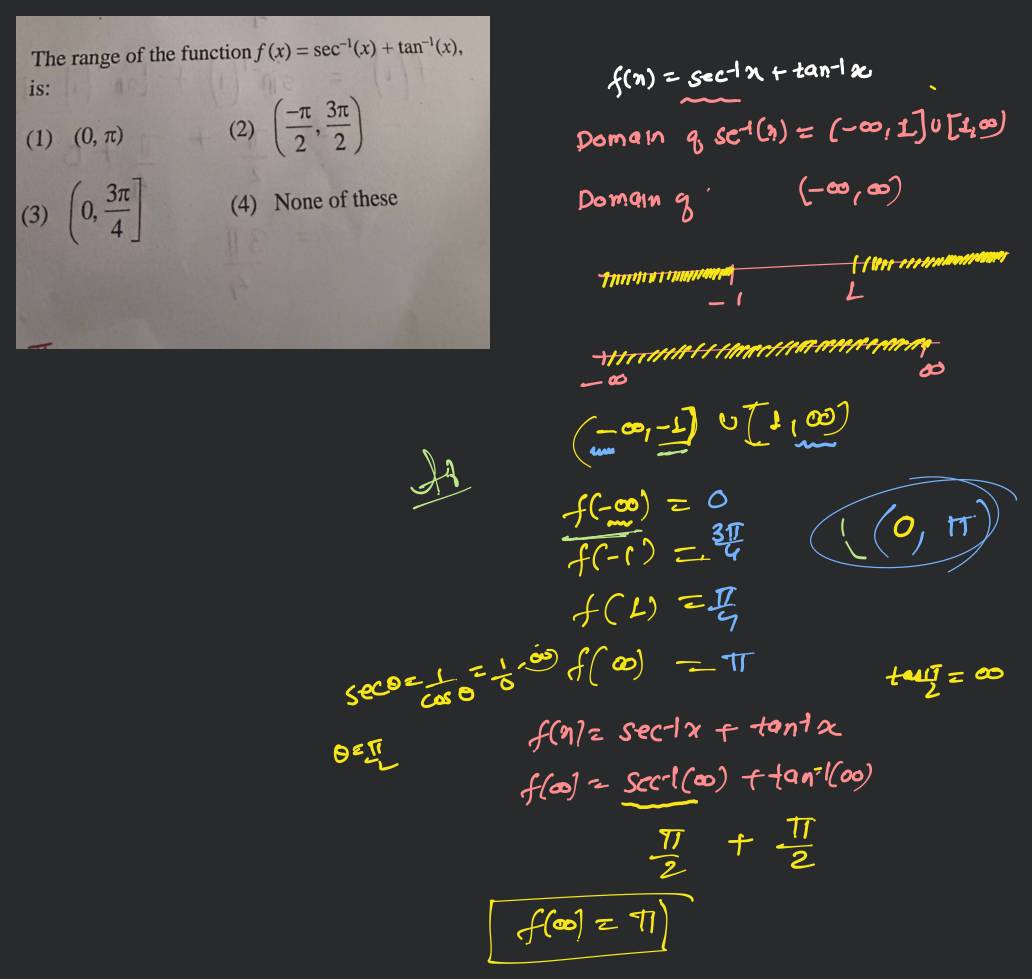 The range of the function f(x) = sec⁻¹(x) + tan⁻¹(x),
is:
(1) (0, π) (2) (-π/2, 3π/2)
(3) (0, 3π/4] (4) None of these
f(x) = sec-1x + tan-1x
Domain of sec-1(x) = (-∞, 1] ∪ [1, ∞)
Domain of (-∞, ∞)
-1 1
-∞ ∞
(-∞, -1] ∪ [1, ∞)
f(-∞) = 0
f(-1) = 3π/4
f(1) = π/4
f(∞) = π
(0, π)
secθ = 1/cosθ = 1/0 = ∞
θ = π/2
tan π/2 = ∞
f(x) = sec-1x + tan-1x
f(∞) = sec-1(∞) + tan-1(∞)
π/2 + π/2
f(∞) = π